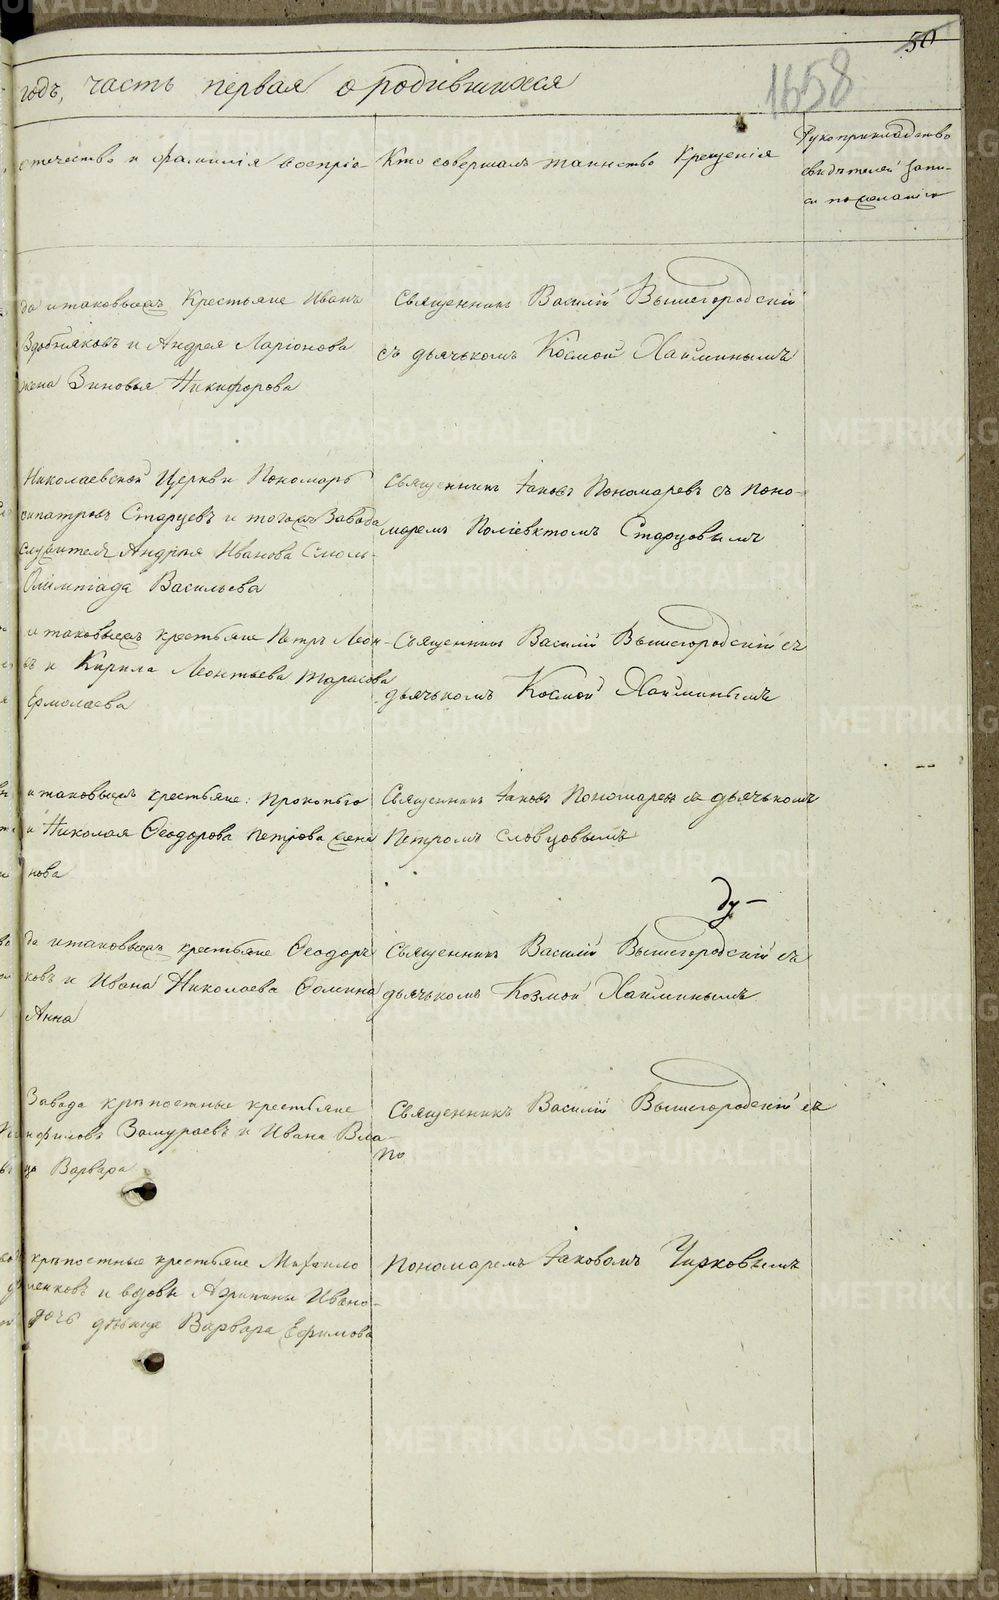 50
1658
годъ, часть первая о родившихся
отечество и фамилія воспріе
Кто совершалъ таинство Крещенія
Рукоприкладство
свидѣтелей запи-
си по желанію
да и таковыежъ Крестьяне Иванъ
Вдовняковъ и Андрея Ларіонова
жена Зиновья Никифорова
Священникъ Василій Вышегородскій
съ дьячькомъ Космой Хайминымъ
Николаевской Церкви Пономарь
сипатровъ Старцевъ и тогожъ Завода
служителя Андрея Иванова Смоль-
Олимпіада Васильева
Священникъ Іаковъ Пономаревъ съ Поно-
маремъ Поліевктомъ Старцовымъ
и таковыежъ крестьяне Петръ Леон-
въ и Кирила Леонтьева Тарасова
Ермолаева
Священникъ Василій Вышегородскій съ
дьячькомъ Космой Хайминымъ
и таковыежъ крестьяне: Прокопье
и Николая Ѳеодорова Петрова жена
нова
Священникъ Іаковъ Пономаревъ съ дьячькомъ
Петромъ Словцовымъ
ду-
да и таковыежъ крестьяне Ѳеодоръ
ковъ и Ивана Николаева Ѳомина
Анна
Священникъ Василій Вышегородскій съ
дьячькомъ Козмой Хайминымъ
Завода крѣпостные крестьяне
нфиловъ Замураевъ и Ивана Вла-
ца Варвара
Священникъ Василій Вышегородскій съ
по
крѣпостные крестьяне Михаило
ленковъ и вдовы Агрипины Ивано-
дочь дѣвица Варвара Ефимова
Пономаремъ Іаковомъ Чирковымъ